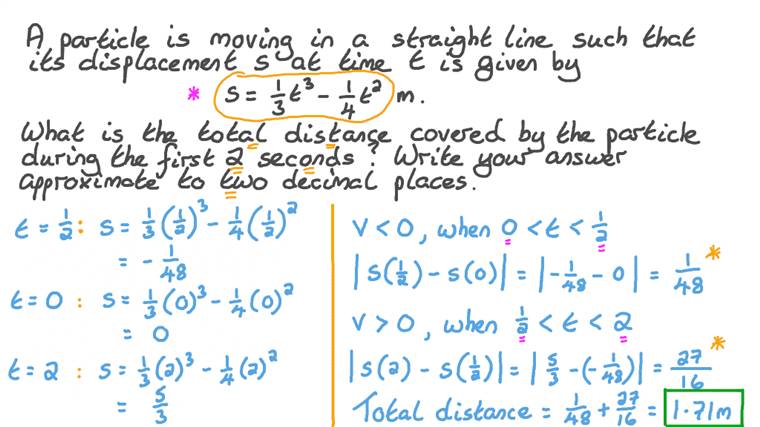 A particle is moving in a straight line such that
its displacement s at time t is given by
* s = 1/3 t³ - 1/4 t² m.
What is the total distance covered by the particle
during the first 2 seconds? Write your answer
approximate to two decimal places.
t = 1/2 : s = 1/3 (1/2)³ - 1/4 (1/2)²
= - 1/48
t = 0 : s = 1/3 (0)³ - 1/4 (0)²
= 0
t = 2 : s = 1/3 (2)³ - 1/4 (2)²
= 5/3
v < 0, when 0 < t < 1/2
|s(1/2) - s(0)| = |-1/48 - 0| = 1/48 *
v > 0, when 1/2 < t < 2
|s(2) - s(1/2)| = |5/3 - (-1/48)| = 27/16 *
Total distance = 1/48 + 27/16 = 1.71m